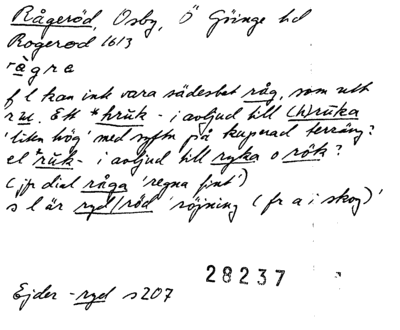 Rågeröd, Osby, Ö Göinge hd
Rogerod 1613
rågra
f l kan inte vara sädesbet råg, som utt
Ett *hrŭk- i avljud till (h)rūka
'liten hög' med syftn på kuperad terräng?
el *rŭk- i avljud till ryka o rök?
(jfr dial råga 'regna fint')
s l är ryd/röd 'röjning (fr a i skog)'
28237
Ejder -ryd s207